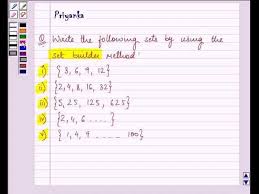 Priyanka
Q Write the following sets by using the
set builder method:
i) {3, 6, 9, 12}
ii) {2, 4, 8, 16, 32}
iii) {5, 25, 125, 625}
iv) {2, 4, 6 .....}
v) {1, 4, 9 ..... 100}